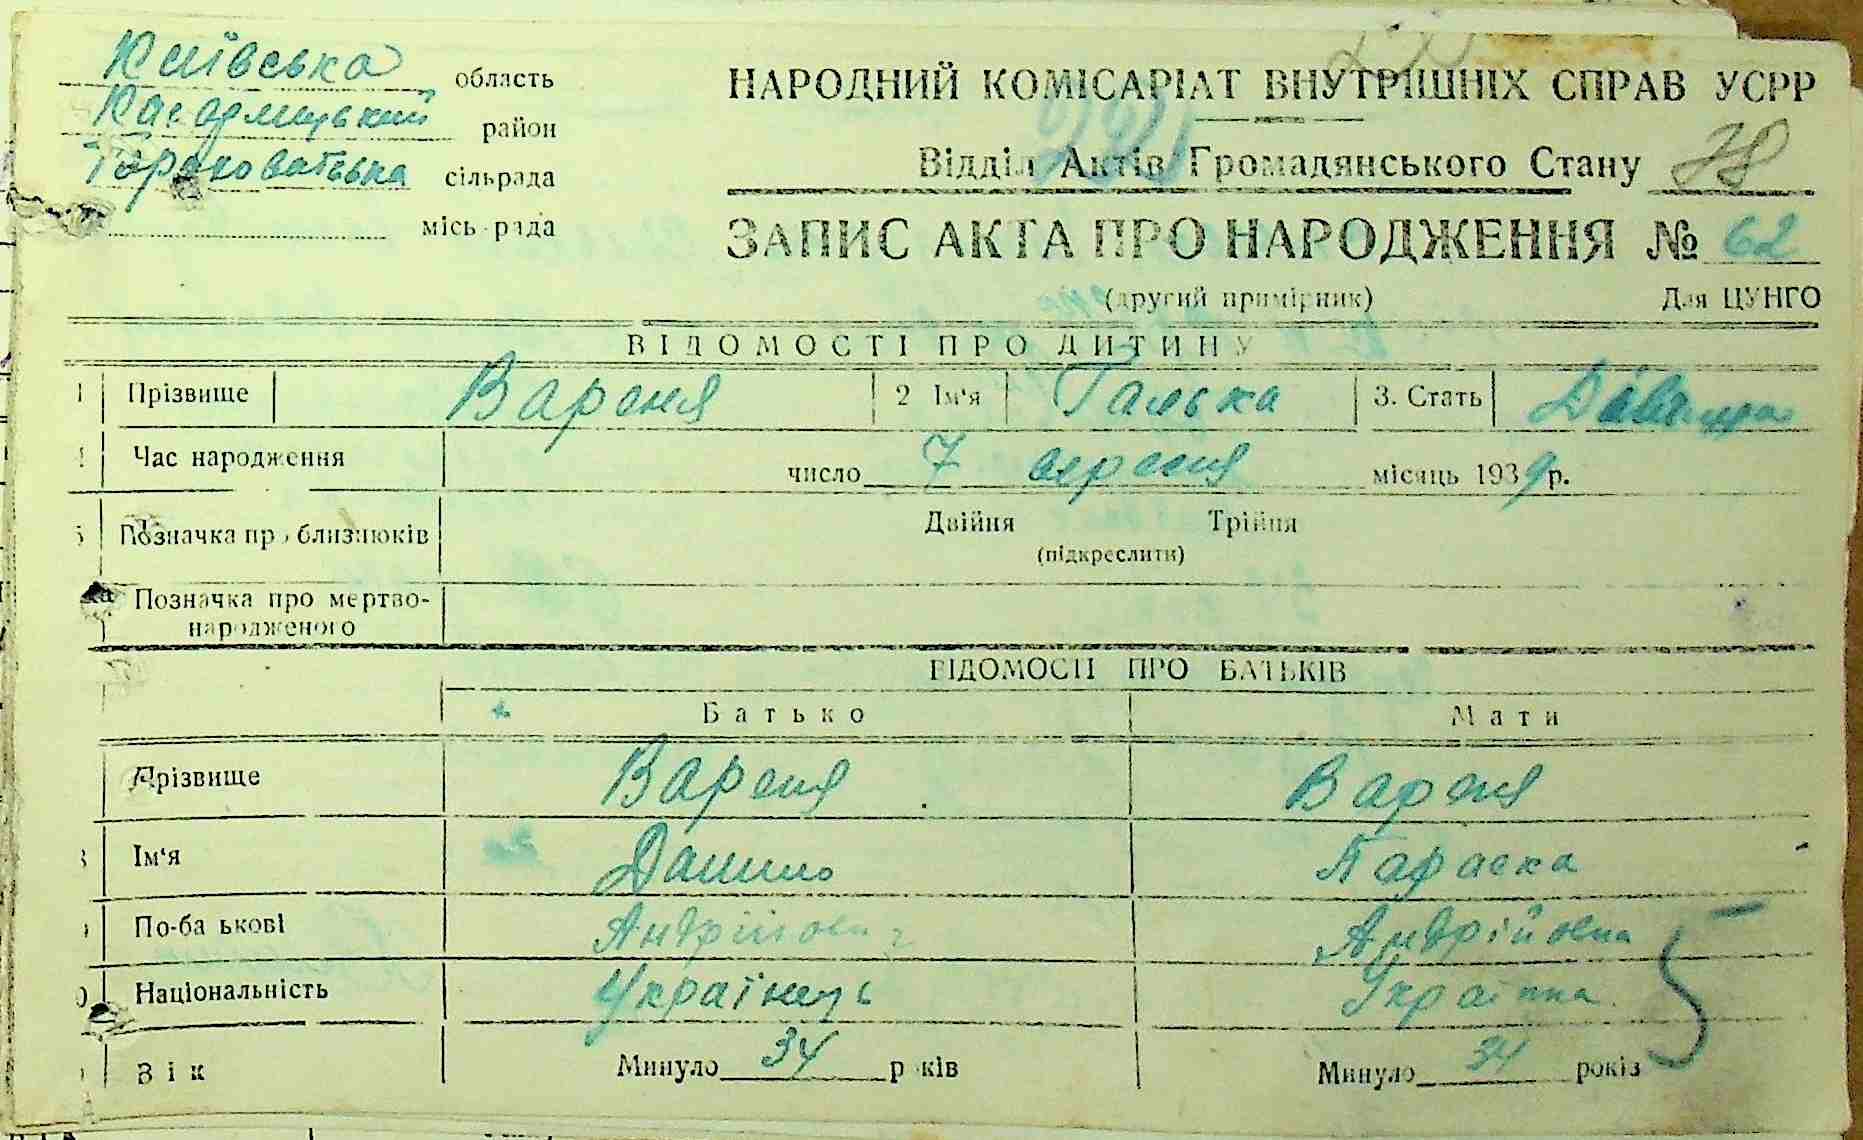 Київська область
район
сільрада
місь рада
НАРОДНИЙ КОМІСАРІАТ ВНУТРІШНІХ СПРАВ УСРР
Відділ Актів Громадянського Стану 78
ЗАПИС АКТА ПРО НАРОДЖЕННЯ № 62
(другий примірник) Для ЦУНГО
ВІДОМОСТІ ПРО ДИТИНУ
1 Прізвище Вареня 2 Ім'я Галька 3. Стать Дівчина
Час народження число 7 вересня місяць 1939 р.
5 Позначка про близнюків Двійня Трійня
(підкреслити)
Позначка про мертво-
народженого
ВІДОМОСТІ ПРО БАТЬКІВ
Батько Мати
Прізвище Вареня Вареня
Ім'я Данило Параска
По-ба ькові Андрійович Андрійовна
Національність Українець Українка
Вік Минуло 34 років Минуло 34 років